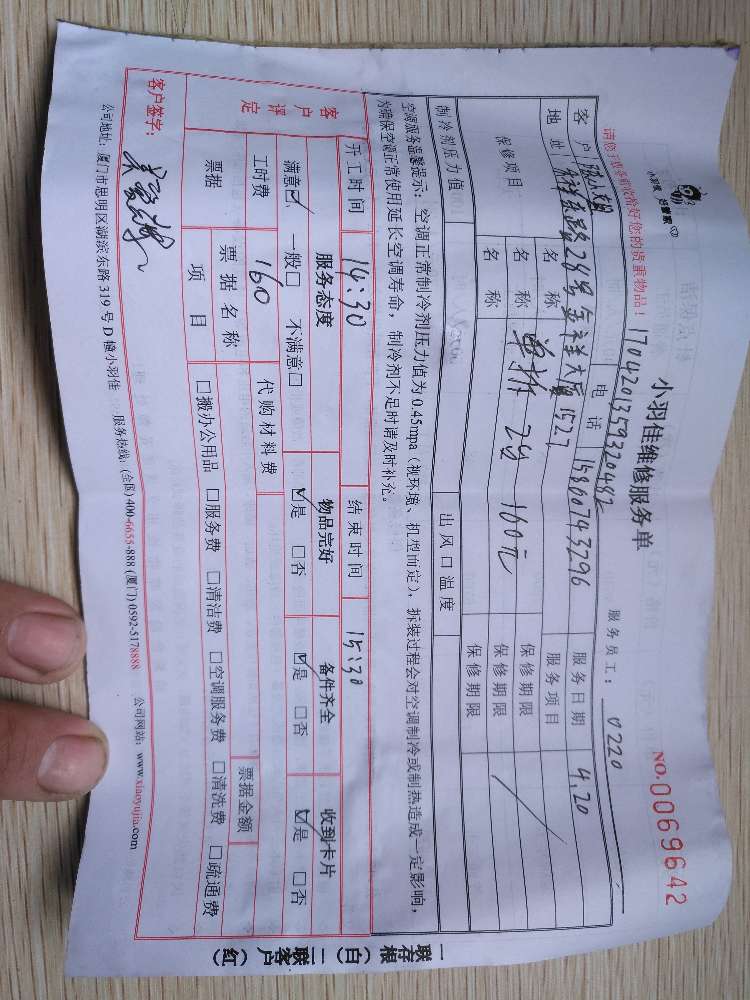 小羽佳 好管家
小羽佳维修服务单
NO.0069642
请您于服务前收拾好您的贵重物品！
17042013593320482
服务员工：0220
客户 电话 15860743296 服务日期 4.20
地址 24号 大厦1527 服务项目
保修项目 名称 保修期限
名称 单拆 2台 160元 保修期限
名称 保修期限
制冷剂压力值 出风口温度
空调服务温馨提示：空调正常制冷剂压力值为0.45mpa（视环境、机型而定），拆装过程会对空调制冷或制热造成一定影响，
为确保空调正常使用延长空调寿命，制冷剂不足时请及时补充。
开工时间 14:30 结束时间 15:30
客户评定 服务态度 物品完好 备件齐全 收到卡片
满意☑ 一般□ 不满意□ ☑是 □否 ☑是 □否 ☑是 □否
工时费 160 代购材料费
票据 票据名称 票据金额
项目 □搬办公用品 □服务费 □清洁费 □空调服务费 □清洗费 □疏通费
客户签字：
公司地址：厦门市思明区湖滨东路319号D幢小羽佳 服务热线：(全国) 400-6655-888 (厦门) 0592-5178888 公司网站：www.xiaoyujia.com
一联存根（白）二联客户（红）